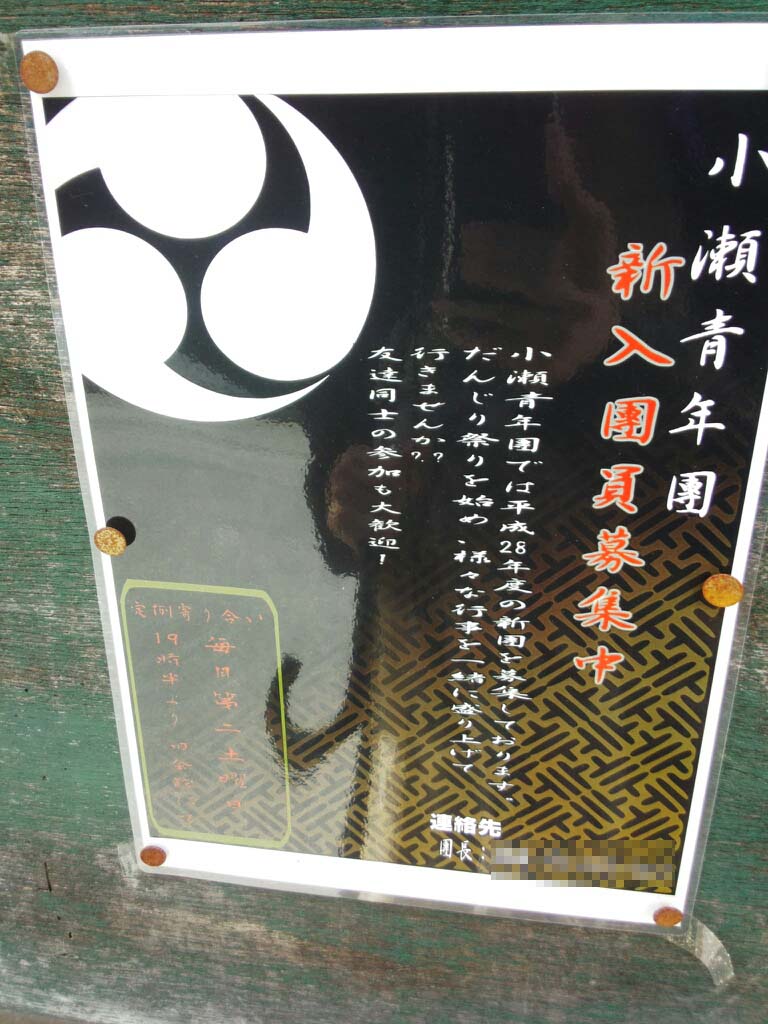 小瀬青年團
新入團員募集中
小瀬青年団では平成28年度の新團を募集しております。
だんじり祭りを始め、様々な行事を一緒に盛り上げて
行きませんか？
友達同士の参加も大歓迎！
定例寄り合い
毎月第二土曜日
19時半より 旧会館にて
連絡先
團長：